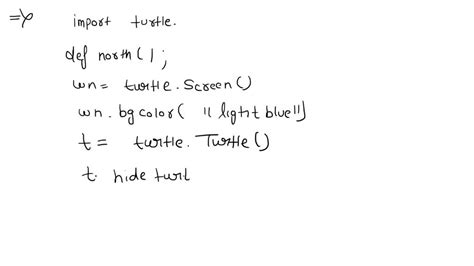 => import turtle.
def north();
wn = turtle.Screen()
wn.bgcolor("light blue")
t = turtle.Turtle()
t. hide turtl